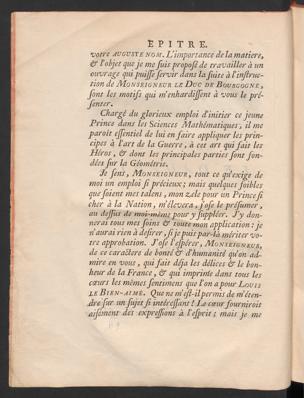 EPITRE.
votre AUGUSTE NOM. L'importance de la matiere,
& l'objet que je me suis proposé de travailler à un
ouvrage qui puisse servir dans la suite à l'instruc-
tion de MONSEIGNEUR LE DUC DE BOURGOGNE,
sont les motifs qui m'enhardissent à vous le pré-
senter.
Chargé du glorieux emploi d'initier ce jeune
Prince dans les Sciences Mathématiques, il me
paroît essentiel de lui en faire appliquer les prin-
cipes à l'art de la Guerre, à cet art qui fait les
Héros, & dont les principales parties sont fon-
dées sur la Géométrie.
Je sens, MONSEIGNEUR, tout ce qu'exige de
moi un emploi si précieux; mais quelques foibles
que soient mes talens, mon zele pour un Prince si
cher à la Nation, m'élevera, j'ose le présumer,
au dessus de moi-même pour y suppléer. J'y don-
nerai tous mes soins & toute mon application; je
n'aurai rien à desirer, si je puis par-là mériter vo-
tre approbation. J'ose l'espérer, MONSEIGNEUR,
de ce caractere de bonté & d'humanité qu'on ad-
mire en vous, qui fait déja les délices & le bon-
heur de la France, & qui imprime dans tous les
cœurs les mêmes sentimens que l'on a pour LOUIS
LE BIEN-AIMÉ. Que ne m'est-il permis de m'éten-
dre sur un sujet si intéressant! Le cœur fourniroit
aisément des expressions à l'esprit; mais je me